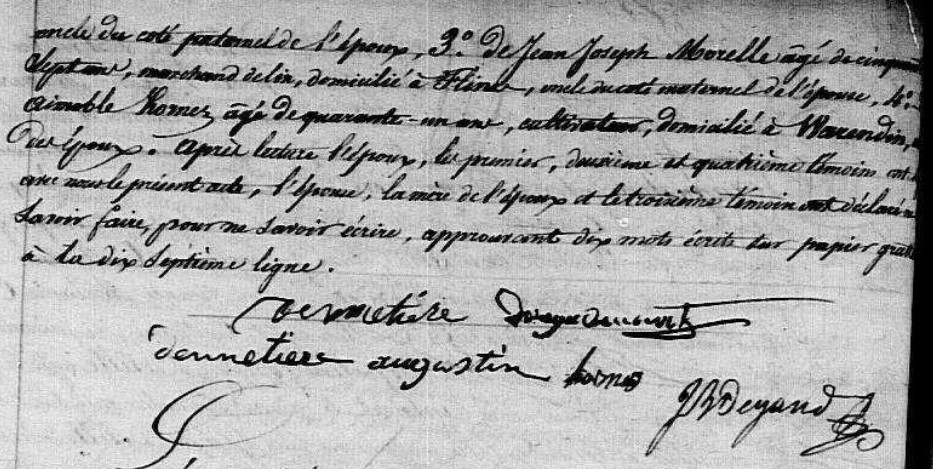 oncle du coté paternel de l'époux, 3.º de Jean Joseph Morelle âgé de cinquante
sept ans, marchand de lin, domicilié à Flines, oncle du coté maternel de l'épouse, 4.º
aimable hornez âgé de quarante-un ans, cultivateur, domicilié à Warendin,
des époux. après lecture l'époux, les premier, deuxième et quatrième témoins ont
avec nous le présent acte, l'épouse, la mère de l'époux et le troisième témoin ont déclaré ne
savoir faire, pour ne savoir écrire, approuvant dix mots écrits sur papier gratté
à la dix septième ligne.
dennetière
dennetiere augustin hornez